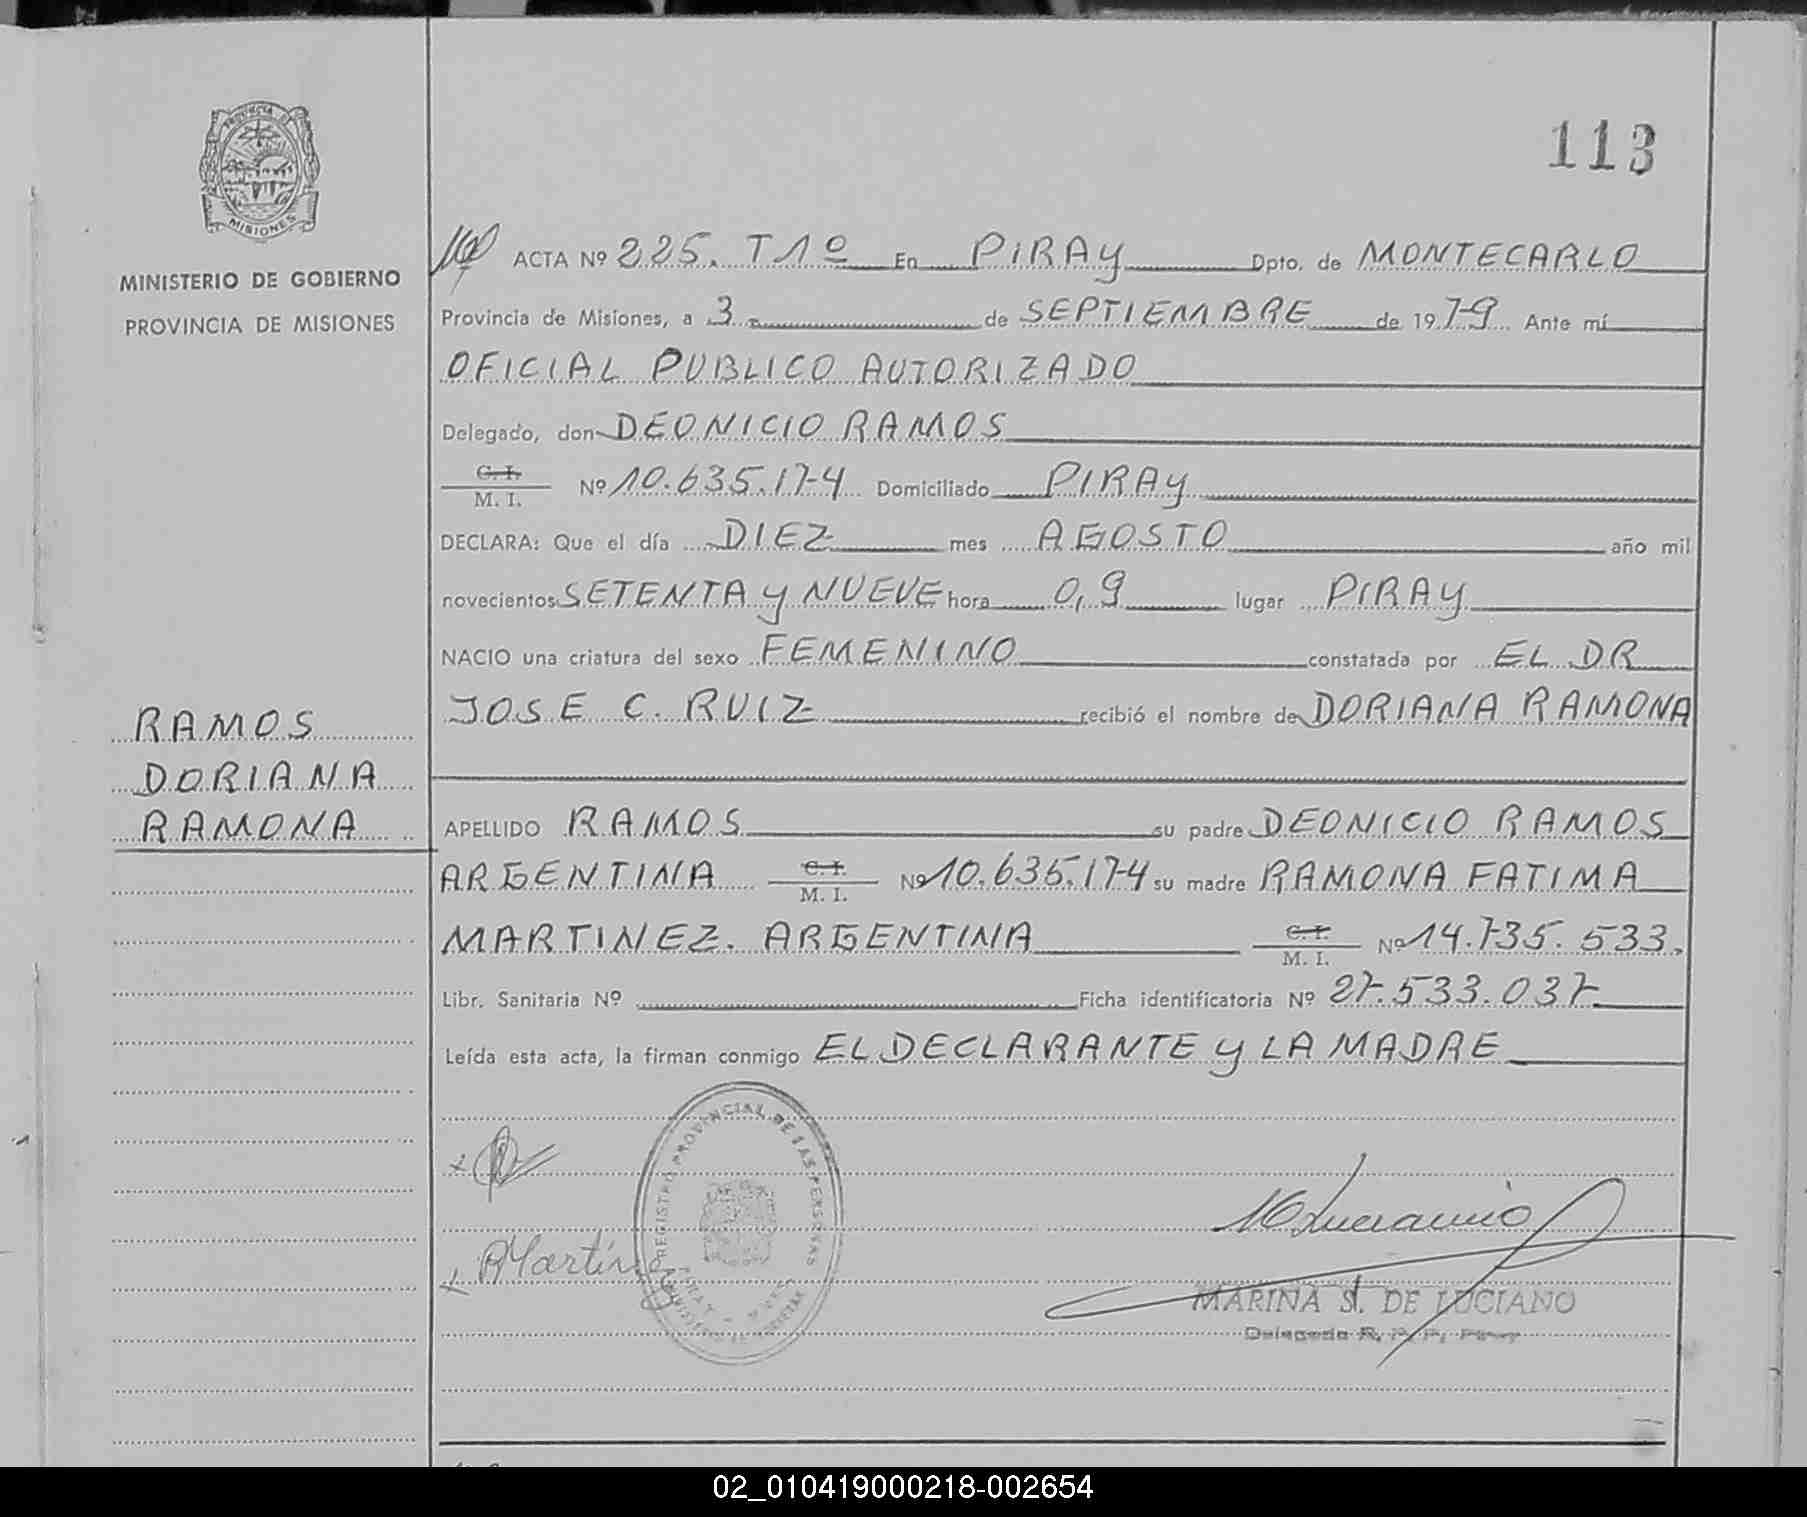 113
PROVINCIA DE
MISIONES
MINISTERIO DE GOBIERNO
PROVINCIA DE MISIONES
ACTA Nº 225. T 1º En PIRAY Dpto. de MONTECARLO
Provincia de Misiones, a 3 de SEPTIEMBRE de 1979 Ante mí
OFICIAL PUBLICO AUTORIZADO
Delegado, don DEONICIO RAMOS
C. I.
M. I. Nº 10.635.174 Domiciliado PIRAY
DECLARA: Que el día DIEZ mes AGOSTO año mil
novecientos SETENTA y NUEVE hora 0,9 lugar PIRAY
NACIO una criatura del sexo FEMENINO constatada por EL DR
JOSE C. RUIZ recibió el nombre de DORIANA RAMONA
RAMOS
DORIANA
RAMONA
APELLIDO RAMOS su padre DEONICIO RAMOS
ARGENTINA C. I. M. I. Nº 10.635.174 su madre RAMONA FATIMA
MARTINEZ. ARGENTINA C. I. M. I. Nº 14.735.533.
Libr. Sanitaria Nº Ficha identificatoria Nº 27.533.037
Leída esta acta, la firman conmigo EL DECLARANTE y LA MADRE
REGISTRO PROVINCIAL DE LAS PERSONAS
RMartínez
MARINA S. DE LUCIANO
Delegada R. P. P. Piray
02_010419000218-002654